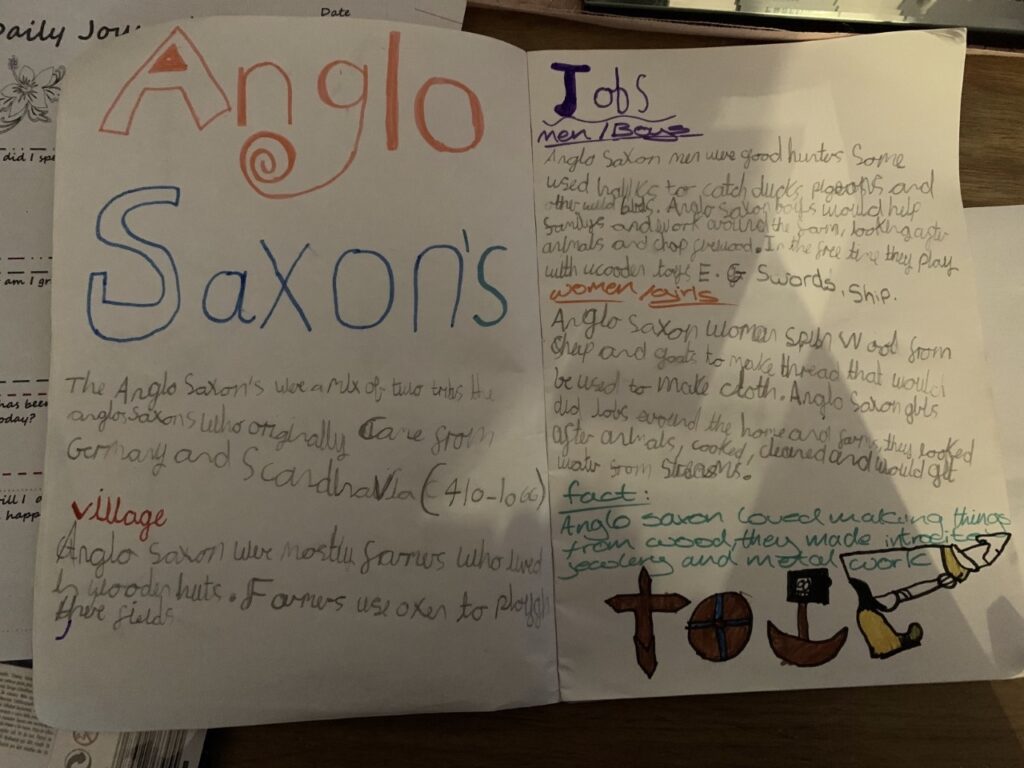 Daily Jou
Date
did I spe
I am gr
has been
oday?
ill I
happ
Anglo
Saxon's
The Anglo Saxon's wore a mix of two tribs the
anglo. saxons who originally Came from
Germany and Scandhavia (410-1066)
village
Anglo Saxon were mostly farmers who lived
in wooden huts. Farmers use oxen to plough
there fields
Jobs
men/Boys
Anglo Saxon men were good hunters Some
used halks to catch ducks pigeons and
other wild birds. Anglo saxon boys would help
familys and work around the farm, looking after
animals and chop firewood. In the free time they play
with wooden toys E. G Swords, Ship.
women/girls
Anglo Saxon woman spun wool from
sheep and goats to make thread that would
be used to make cloth. Anglo Saxon girls
did Jobs around the home and farm, they looked
after animals, cooked, cleaned and would get
water from streams.
fact:
Anglo saxon loved making things
from wood they made introcite
jewelery and metal work